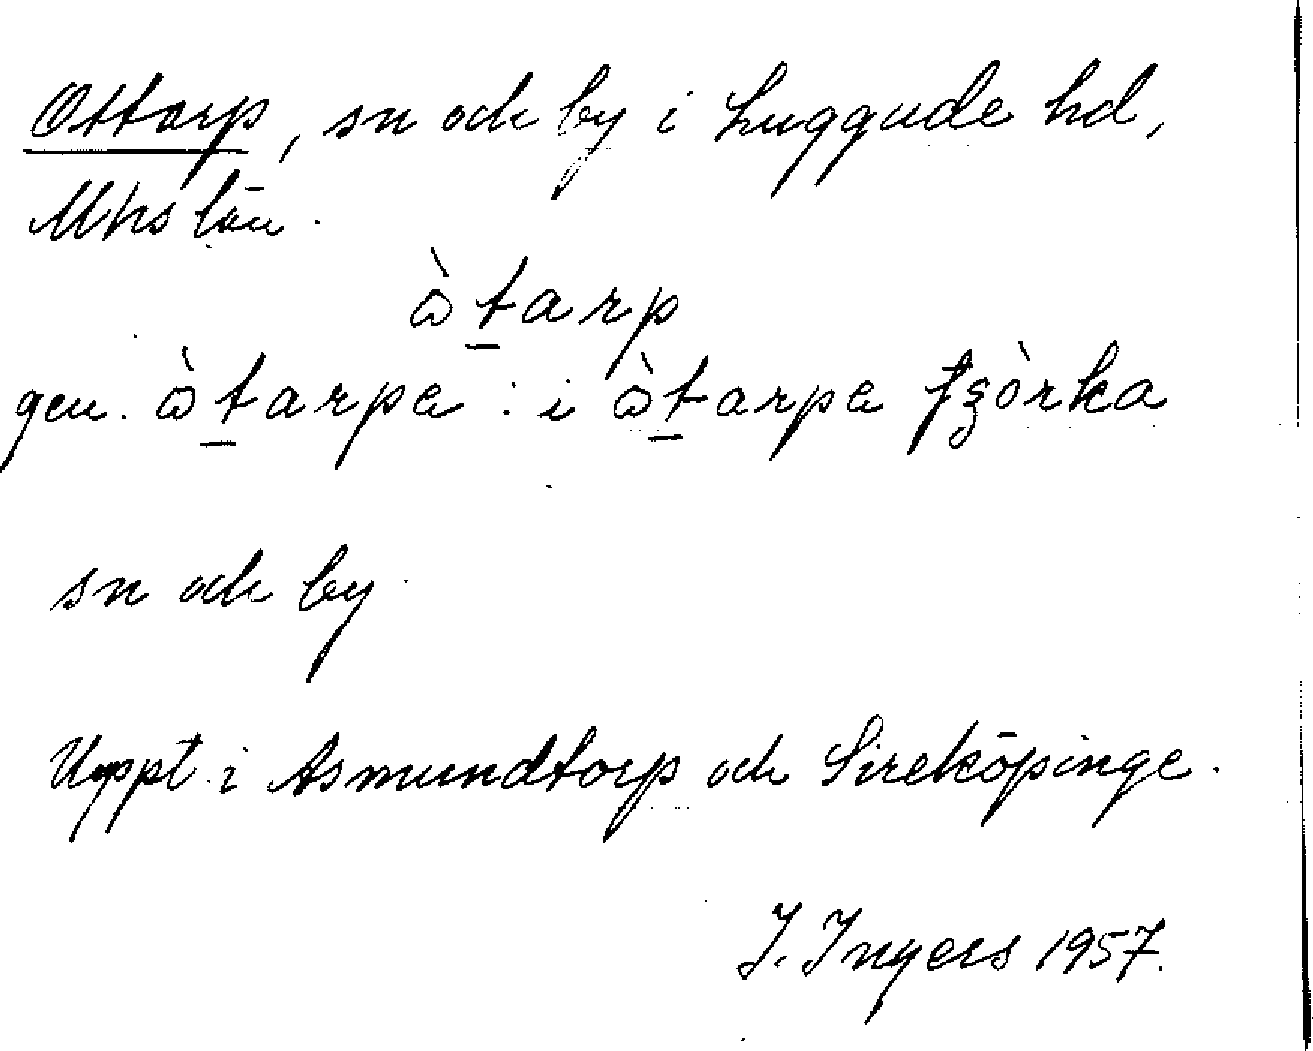 Ottarp, sn och by i Luggude hd,
Mhs län.
ꞷ̀t̠arp
gen. ꞷ̀t̠arpa : i ꞷ̀t̠arpa ʃʒòrka
sn och by.
Uppt. i Asmundtorp och Sireköpinge.
I. Ingers 1957.